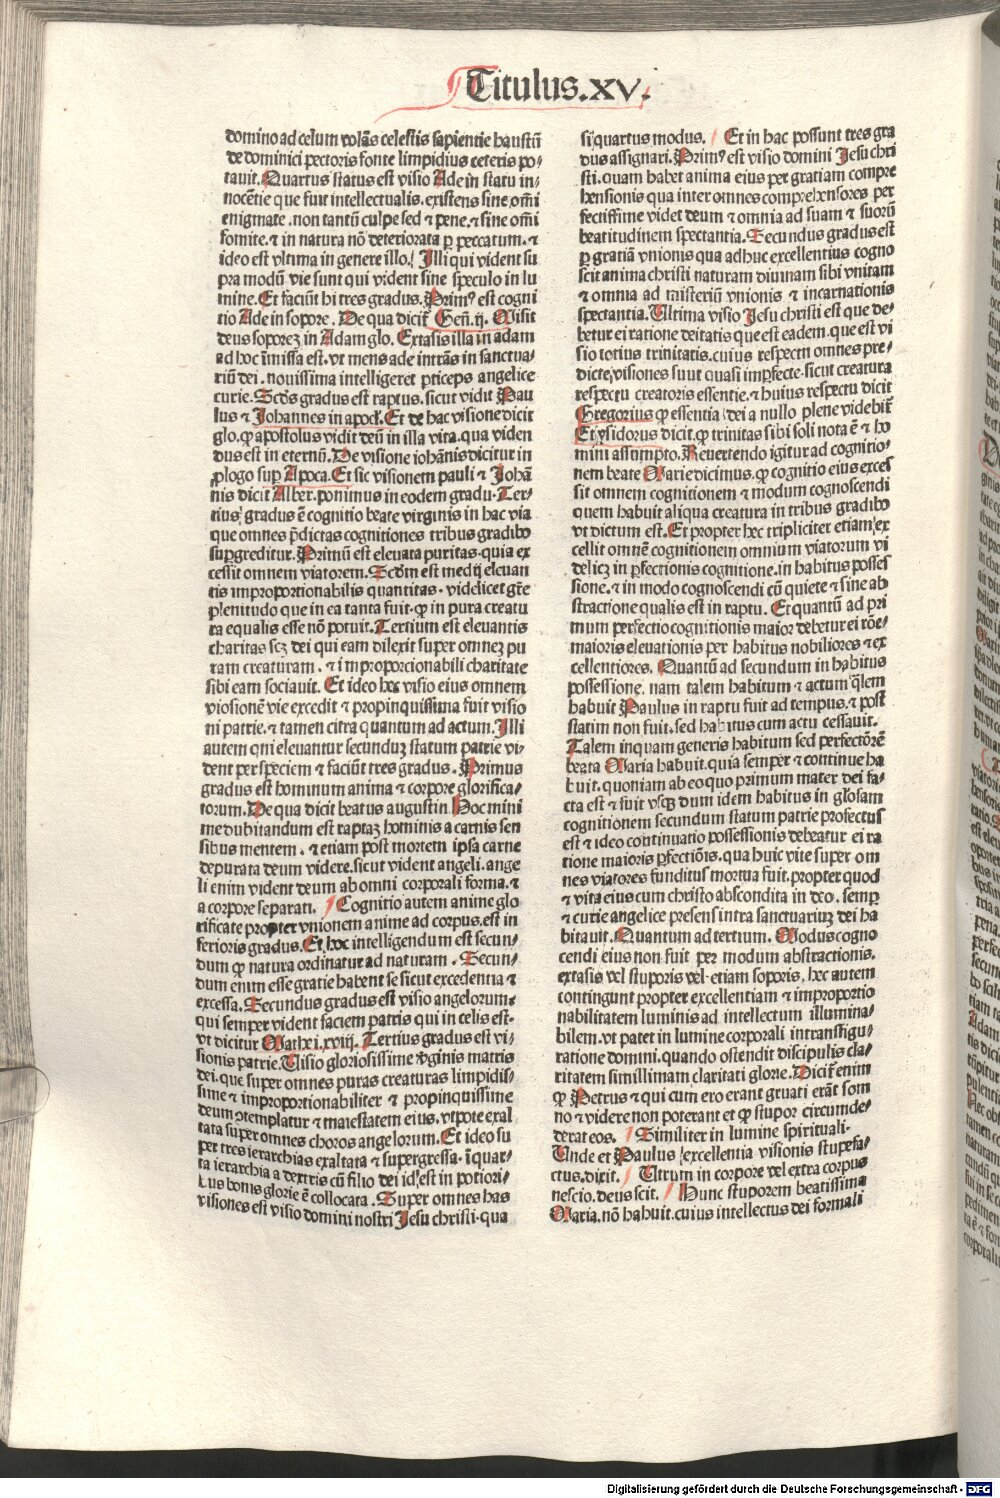 Titulus.xv.
domino ad celum volãs celestis sapientie haustũ
de dominici pectoris fonte limpidius ceteris po⸗
tauit. Quartus status est visio Ade in statu in⸗
nocẽtie que fuit intellectualis. existens sine om̃i
enigmate. non tantũ culpe sed ⁊ pene. ⁊ sine om̃i
fomite. ⁊ in natura nõ deteriorata ꝑ peccatum. ⁊
ideo est vltima in genere illo. Illi qui vident su
pra modũ vie sunt qui vident sine speculo in lu
mine. Et faciũt hi tres gradus. Primꝰ est cogni
tio Ade in sopore. De qua dicit̃ Geñ. ij. Misit
deus soporeꝫ in Adam glo. Extasis illa in adam
ad hoc ĩmissa est. vt mens ade intrãs in sanctua⸗
riũ dei. nouissima intelligeret ꝑticeps angelice
curie. Scđs gradus est raptus. sicut vidit Pau
lus ⁊ Johannes in apocł. Et de hac visione dicit
glo. ꝙ apostolus vidit deũ in illa vita. qua viden
dus est in eternũ. De visione iohãnis dicitur in
ꝓlogo suꝑ Apoca. Et sic visionem pauli ⁊ Johã
nis dicit Alber. ponimus in eodem gradu. Ter⸗
tius gradus ẽ cognitio beate virginis in hac via
que omnes p̃dictas cognitiones tribus gradibꝰ
suꝑgreditur. Primũ est eleuata puritas. quia ex
cessit omnem viatorem. Scđm est medij eleuan
tis improportionabilis quantitas. videlicet gr̃e
plenitudo que in ea tanta fuit. ꝙ in pura creatu
ra equalis esse nõ potuit. Tertium est eleuantis
charitas scꝫ dei qui eam dilexit super omneꝫ pu
ram creaturam. ⁊ improporcionabili charitate
sibi eam sociauit. Et ideo hec visio eius omnem
viosionẽ vie excedit ⁊ propinquissima fuit visio
ni patrie. ⁊ tamen citra quantum ad actum. Illi
autem qui eleuantur secundũꝫ statum patrie vi⸗
dent per speciem ⁊ faciũt tres gradus. Primus
gradus est hominum anima ⁊ corpore glorifica⸗
torum. De qua dicit beatus augustin. Hoc mini
me dubitandum est raptaꝫ hominis a carnis sen
sibus mentem. ⁊ etiam post mortem ipsa carne
depurata deum videre. sicut vident angeli. ange
li enim vident deum ab omni corporali forma. ⁊
a corpore separati. Cognitio autem anime glo
rificate propter vnionem anime ad corpus. est in
ferioris gradus. Et hoc intelligendum est secun⸗
dum ꝙ natura ordinatur ad naturam. Secun⸗
dum enim esse gratie habent se sicut excedentia ⁊
excessa. Secundus gradus est visio angelorum.
qui semper vident faciem patris qui in celis est.
vt dicitur Mathei. xviij. Tertius gradus est vi⸗
sionis patrie. Visio gloriosissime v̓ginis matris
dei. que super omnes puras creaturas limpidis⸗
sime ⁊ improportionabiliter ⁊ propinquissime
deum ↄtemplatur ⁊ maiestatem eius. vtpote exal
tata super omnes choros angelorum. Et ideo su
per tres ierarchias exaltata ⁊ supergressa. ĩ quar⸗
ta ierarchia a dextris cũ filio dei id est in potiori⸗
bus bonis glorie ẽ collocata. Super omnes has
visiones est visio domini nostri Jesu christi. qua
si quartus modus. Et in hac possunt tres gra
dus assignari. Primꝰ est visio domini Jesu chri
sti. quam habet anima eius per gratiam compre
hensionis qua inter omnes comprehensores per
fectissime videt deum ⁊ omnia ad suam ⁊ suorũ
beatitudinem spectantia. Secundus gradus est
ꝑ gratiã vnionis qua adhuc excellentius cogno
scit anima christi naturam diuinam sibi vnitam
⁊ omnia ad misteriũ vnionis ⁊ incarnationis
spectantia. Ultima visio Jesu christi est que de⸗
betur ei ratione deitatis que est eadem. que est vi
sio totius trinitatis. cuius respectu omnes pre⸗
dicte visiones sunt quasi imꝑfecte. sicut creatura
respectu creatoris essentie. ⁊ huius respectu dicit
Gregorius ꝙ essentia dei a nullo plene videbit̃
Et ysidorus dicit. ꝙ trinitas sibi soli nota ẽ ⁊ ho
mini assumpto. Reuertendo igitur ad cognitio⸗
nem beate Marie dicimus. ꝙ cognitio eius exces
sit omnem cognitionem ⁊ modum cognoscendi
quem habuit aliqua creatura in tribus gradibꝰ
vt dictum est. Et propter hec tripliciter etiam ex
cellit omnẽ cognitionem omnium viatorum vi
delicꝫ in ꝑfectionis cognitione. in habitus posses
sione. ⁊ in modo cognoscendi cũ quiete ⁊ sine ab
stractione qualis est in raptu. Et quantũ ad pri
mum perfectio cognitionis maior debetur ei rõe⸗
maioris eleuationis per habitus nobiliores ⁊ ex
cellentiores. Quantũ ad secundum in habitus
possessione. nam talem habitum ⁊ actum q̃lem
habuit Paulus in raptu fuit ad tempus. ⁊ post
statim non fuit. sed habitus cum actu cessauit.
Talem inquam generis habitum sed perfectõrẽ
beata Maria habuit. quia semper ⁊ continue ha
buit. quoniam ab eo quo primum mater dei fa⸗
cta est ⁊ fuit vsqꝫ dum idem habitus in gl̓osam
cognitionem secundum statum patrie profectus
est ⁊ ideo continuatio possessionis debeatur ei ra
tione maioris ꝑfectiõis. qua huic vite super om
nes viatores funditus mortua fuit. propter quod
⁊ vita eius cum christo abscondita in deo. semꝑ
⁊ curie angelice presens intra sanctuariuꝫ dei ha
bitauit. Quantum ad tertium. Modus cogno
cendi eius non fuit per modum abstractionis.
extasis vel stuporis vel etiam soporis. hec autem
contingunt propter excellentiam ⁊ improportio
nabilitatem luminis ad intellectum illumina⸗
bilem. vt patet in lumine corporali intransfigu⸗
ratione domini. quando ostendit discipulis cla⸗
ritatem simillimam claritati glorie. Dicit̃ enim
ꝙ Petrus ⁊ qui cum eo erant gruati erãt som
no ⁊ videre non poterant et ꝙ stupor circumde⸗
derat eos. Similiter in lumine spirituali.
Unde et Paulus excellentia visionis stupefa⸗
ctus. dixit. Utrum in corpore vel extra corpus
nescio. deus scit. Hunc stuporem beatissima
Maria. nõ habuit. cuius intellectus dei formali
Digitalisierung gefördert durch die Deutsche Forschungsgemeinschaft - DFG